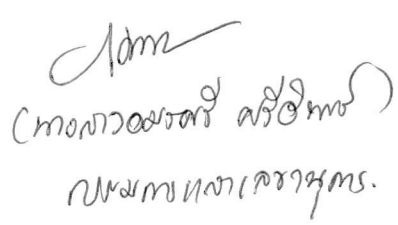 (นางสาวอมรศรี ศรีอินทร์)
กรรมการและเลขานุการ.